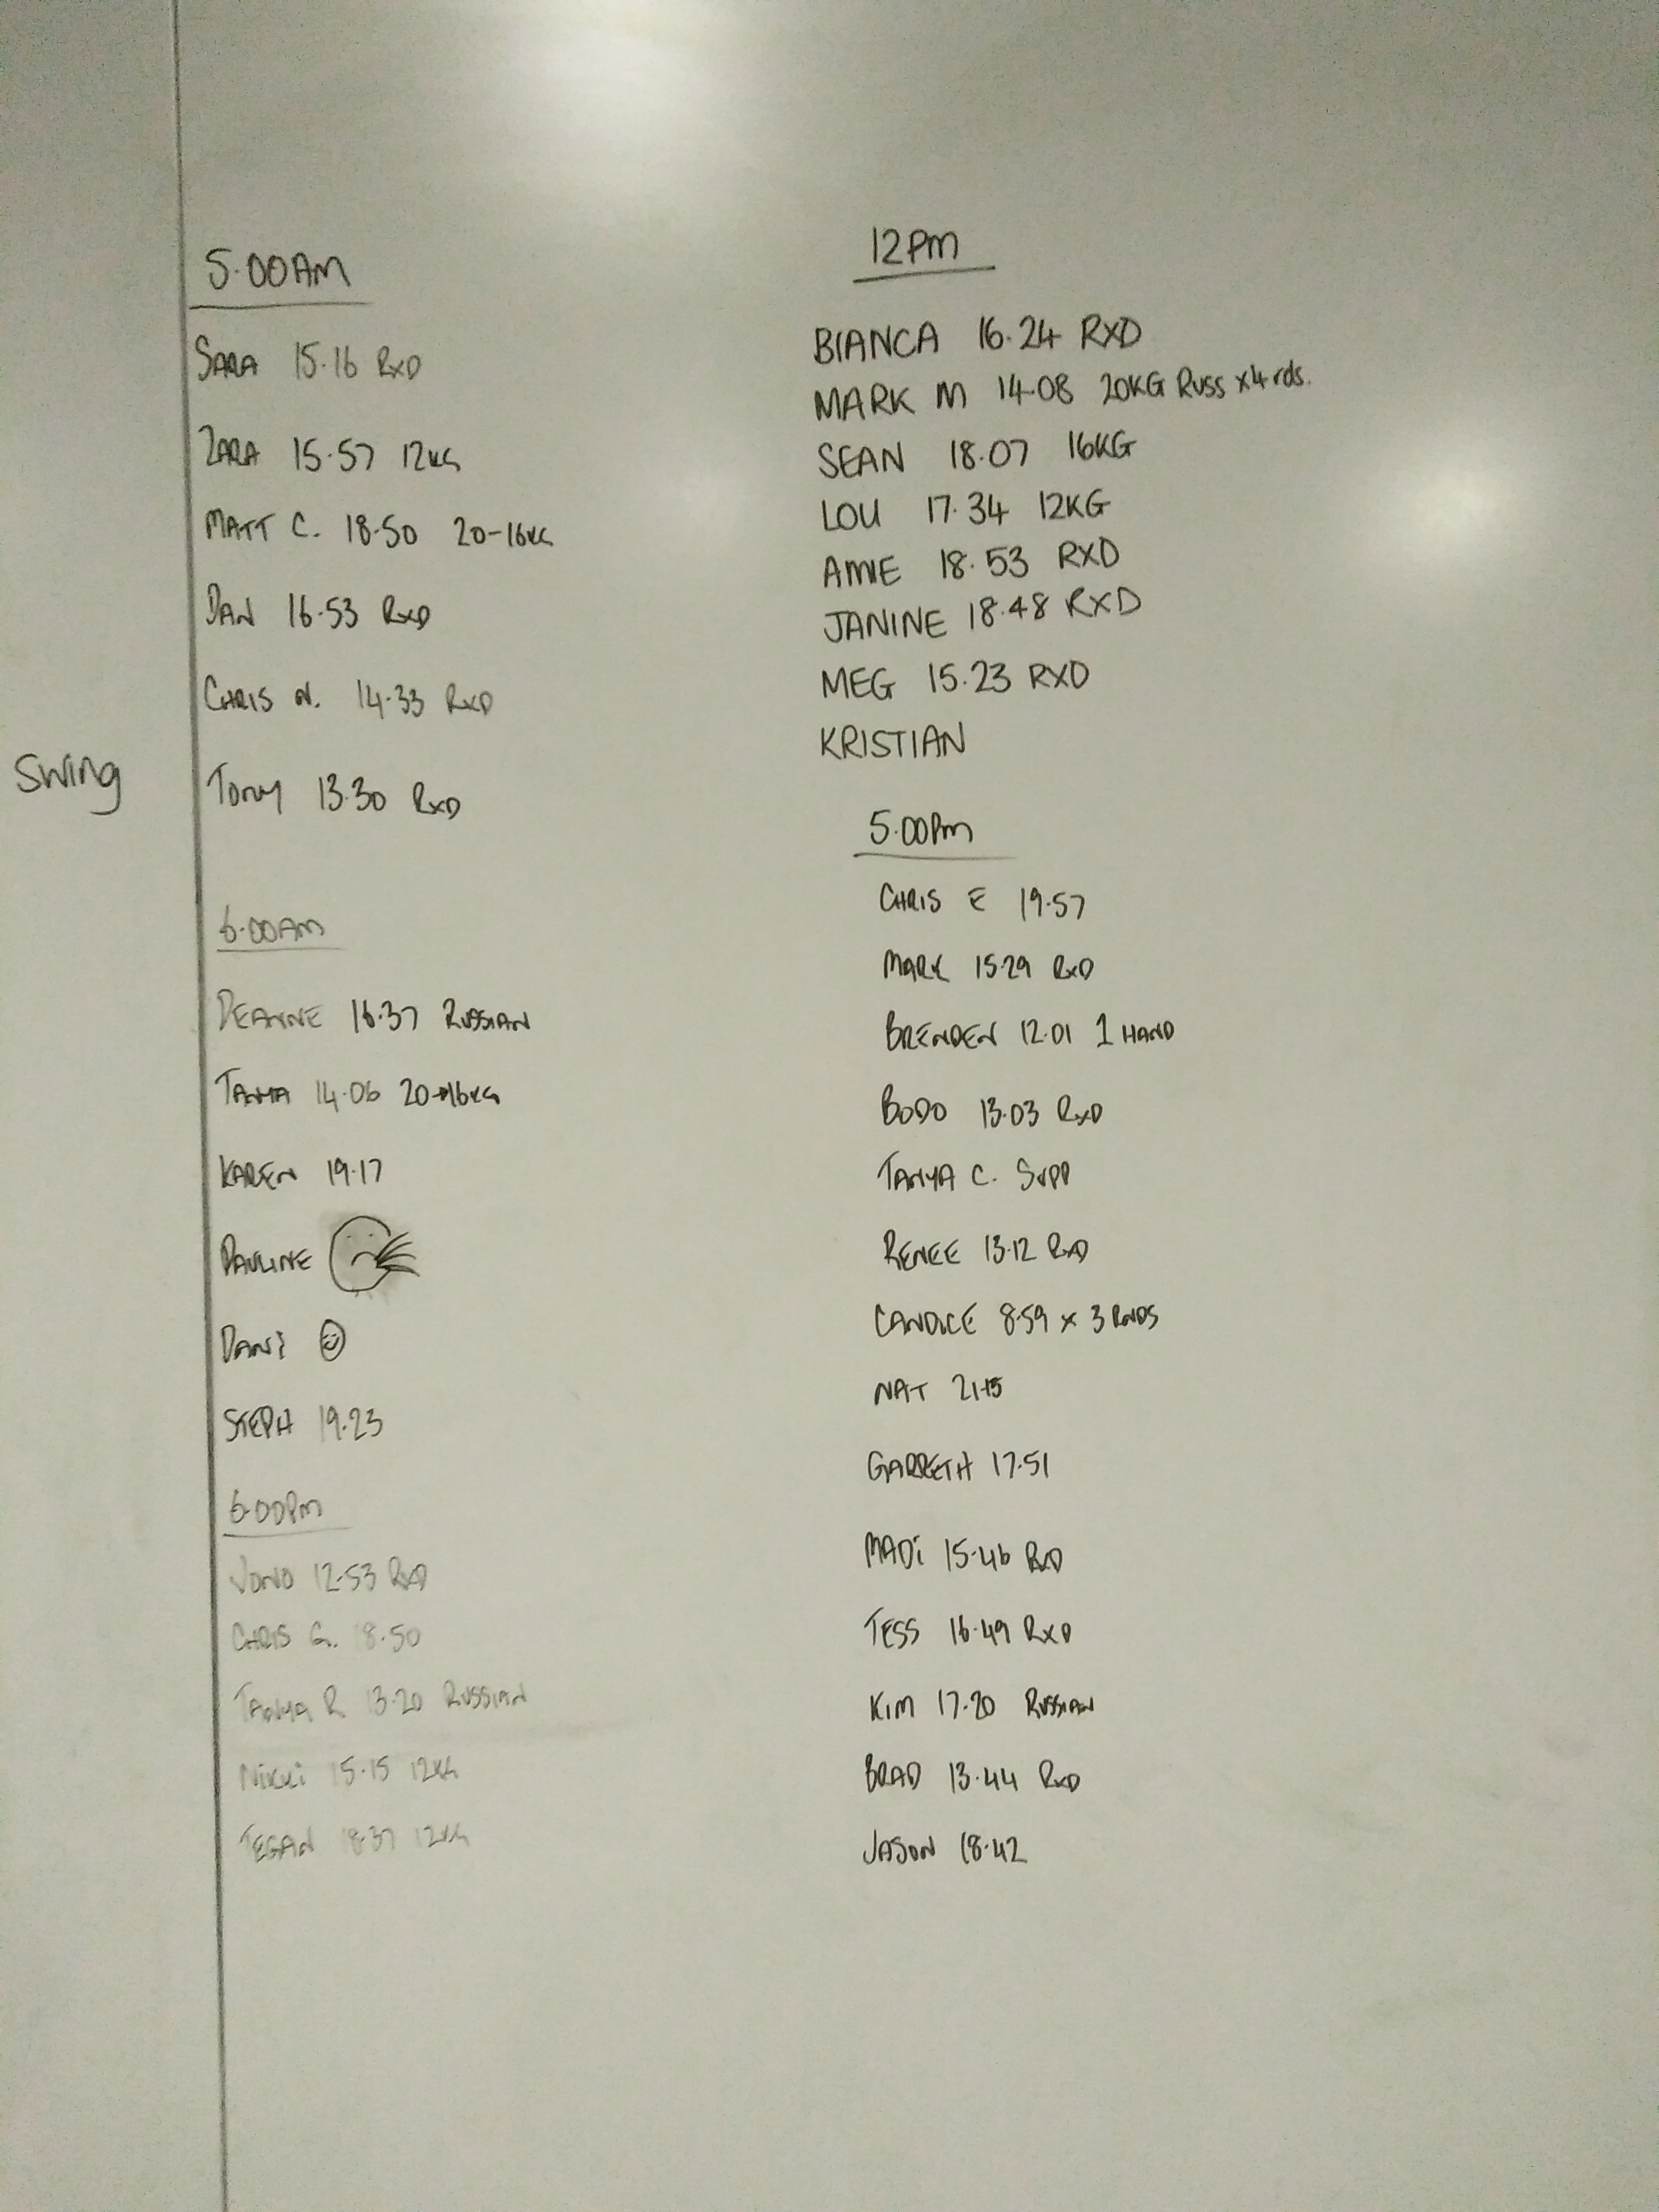 Swing
5.00AM
SARA 15.16 RXD
ZARA 15.57 12KG
MATT C. 18.50 20-16KG
DAN 16.53 RXD
CHRIS N. 14.33 RXD
TONY 13.30 RXD
6.00AM
DEANNE 16.37 RUSSIAN
TANYA 14.06 20-16KG
KAREN 19.17
PAULINE
DANi
STEPH 19.23
6.00PM
JONO 12.53 RXD
CHRIS G. 18.50
TANYA R 13.20 RUSSIAN
NiKKi 15.15 12KG
TEGAN 18.37 12KG
12PM
BIANCA 16.24 RXD
MARK M 14.08 20KG RUSS x4 rds.
SEAN 18.07 16KG
LOU 17.34 12KG
AMIE 18.53 RXD
JANINE 18.48 RXD
MEG 15.23 RXD
KRISTIAN
5.00PM
CHRIS E 19.57
MARK 15.29 RXD
BRENDEN 12.01 1 HAND
BODO 13.03 RXD
TANYA C. SUPP
RENEE 13.12 RXD
CANDICE 8.59 x 3 RNDS
NAT 21.15
GARRETH 17.51
MADi 15.46 RXD
TESS 16.49 RXD
KIM 17.20 RUSSIAN
BRAD 13.44 RXD
JASON 18.42